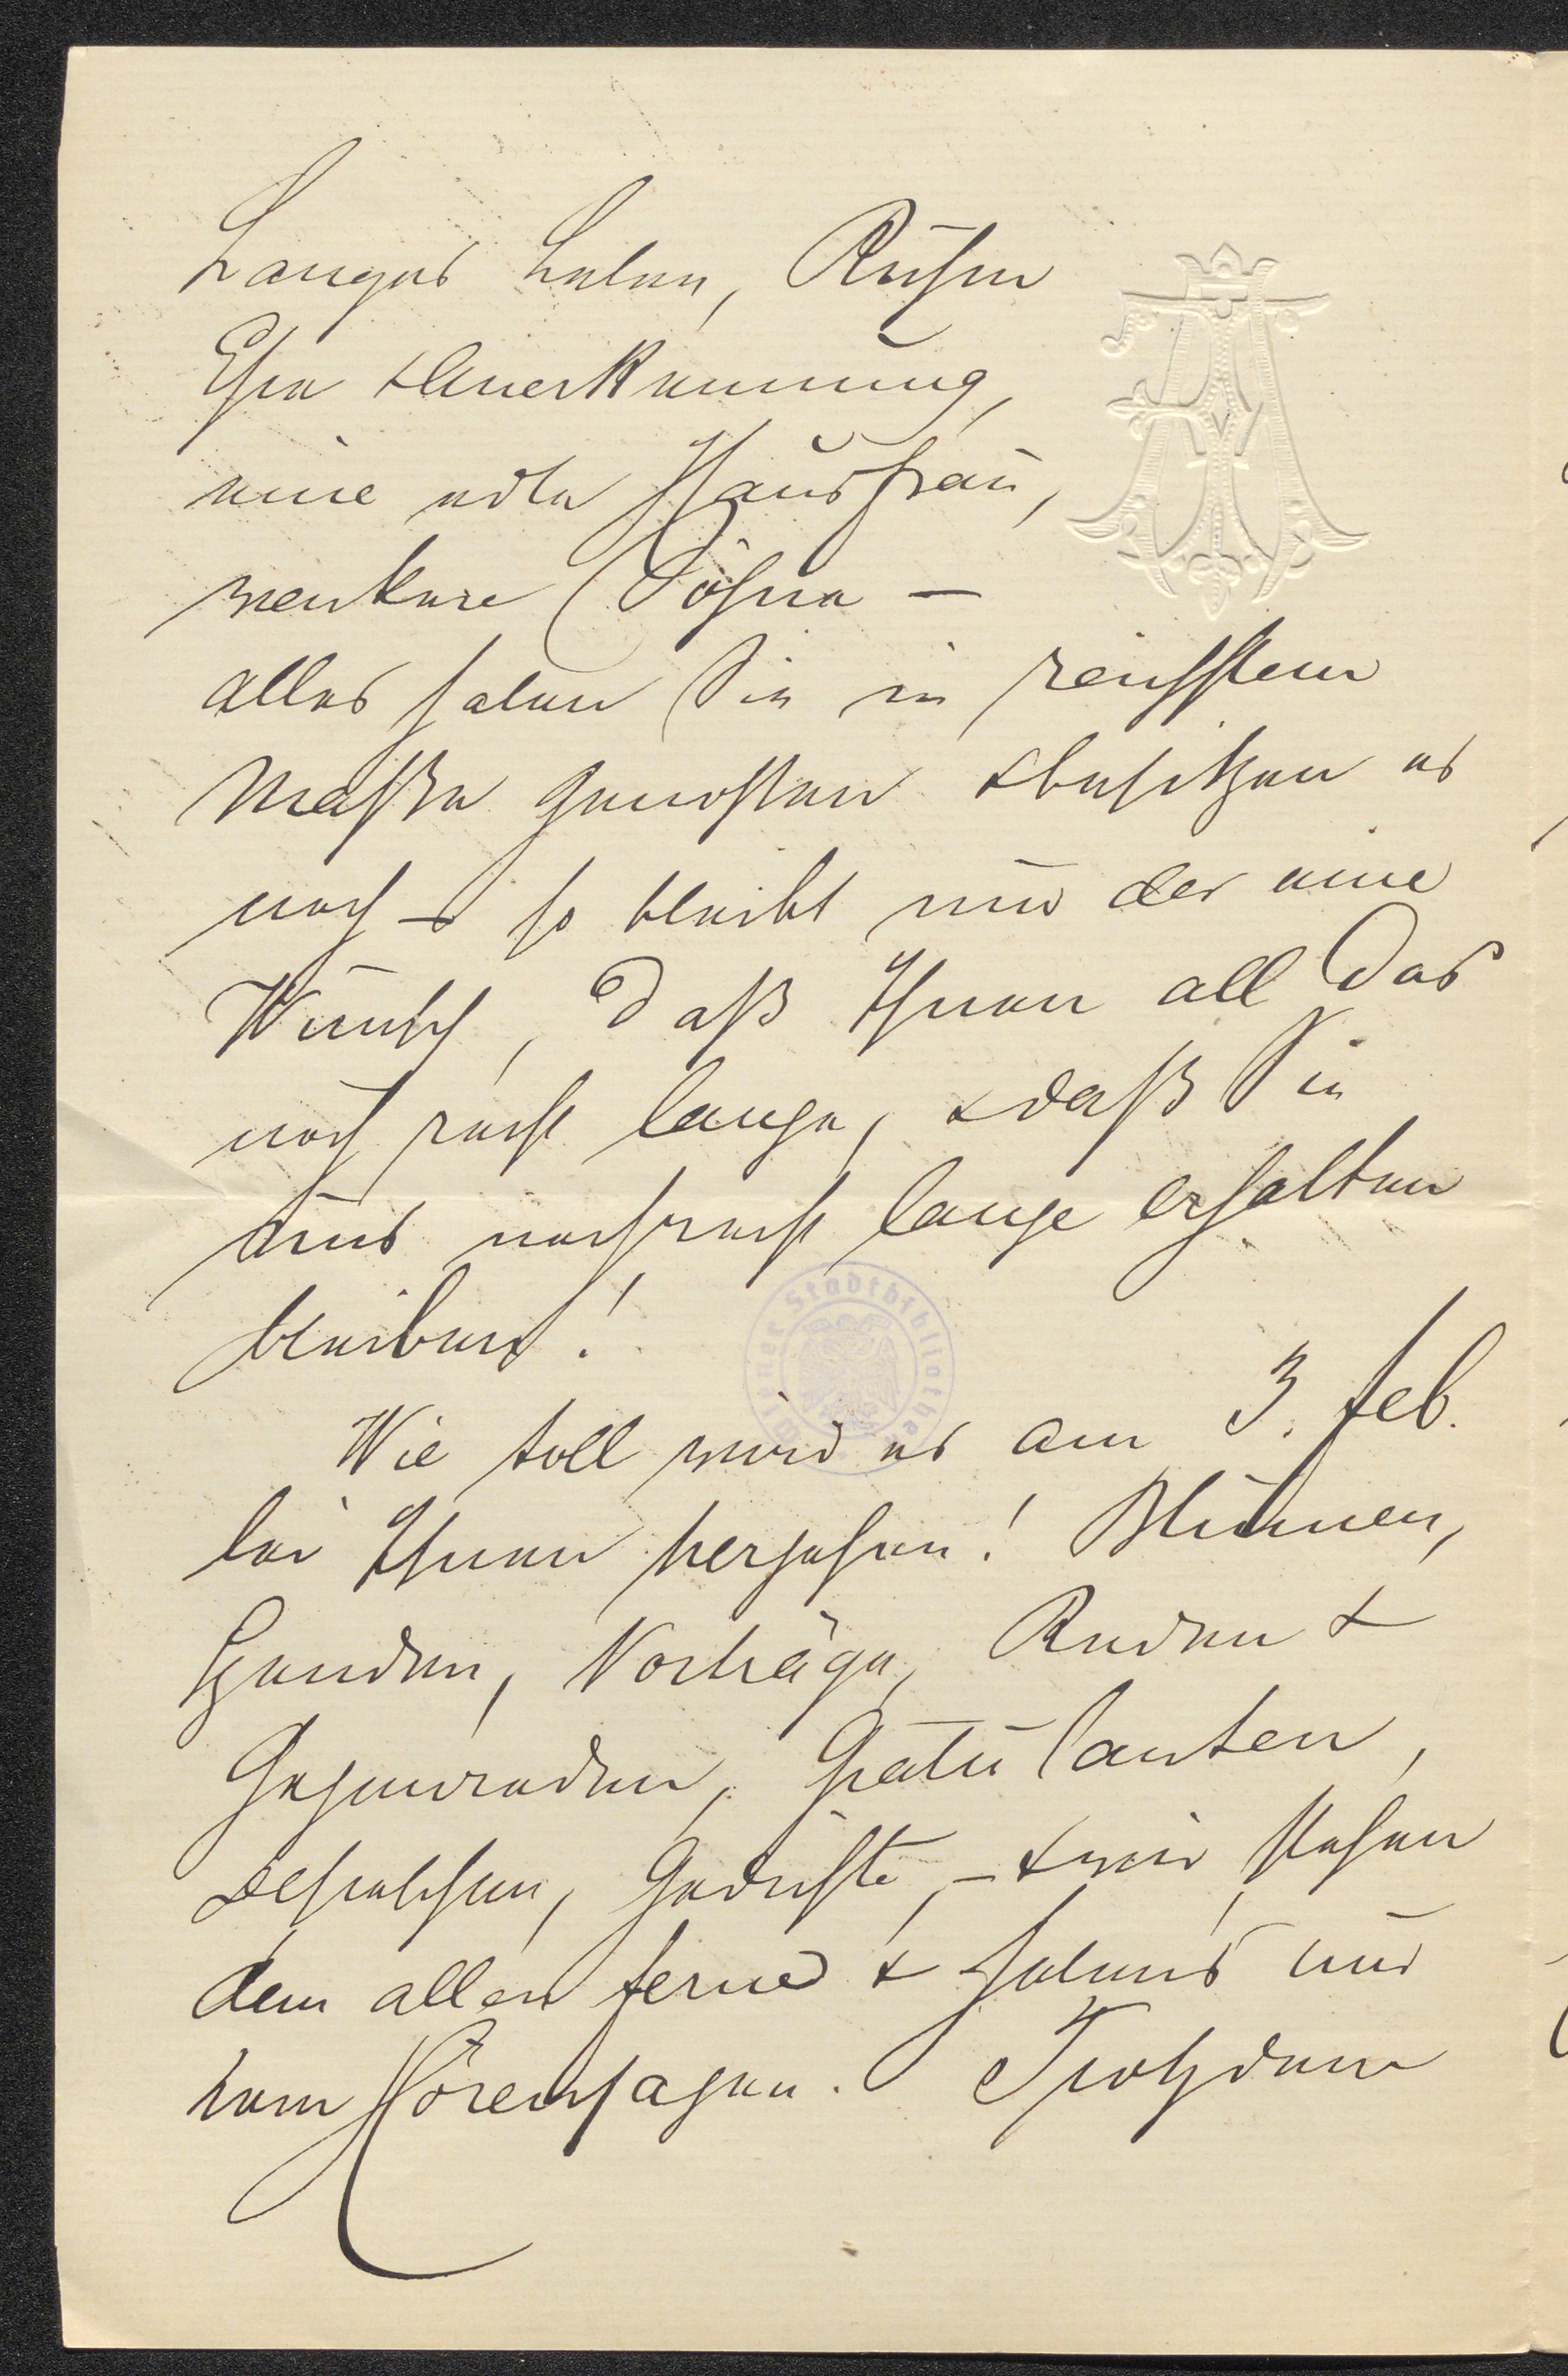 Langes Leben, Ruhm
Ehre & Anerkennung,
eine edle Hausfrau,
wackere Söhne –
alles haben Sie in reichstem
Maße genossen & besitzen es
noch – so bleibt nur der eine
Wunsch, daß Ihnen all das
noch recht lange, & daß Sie
uns noch recht lange erhalten
bleiben!
Wie toll wird es am 3. Feb.
bei Ihnen hergehen! Blumen,
Spenden, Vorträge, Reden &
Gegenreden, Gratulanten,
Depeschen, Gedichte, – & wir stehen
dem allen ferne & haben's nur
vom Hörensagen. Trotzdem
Kölner Stadtbibliothek